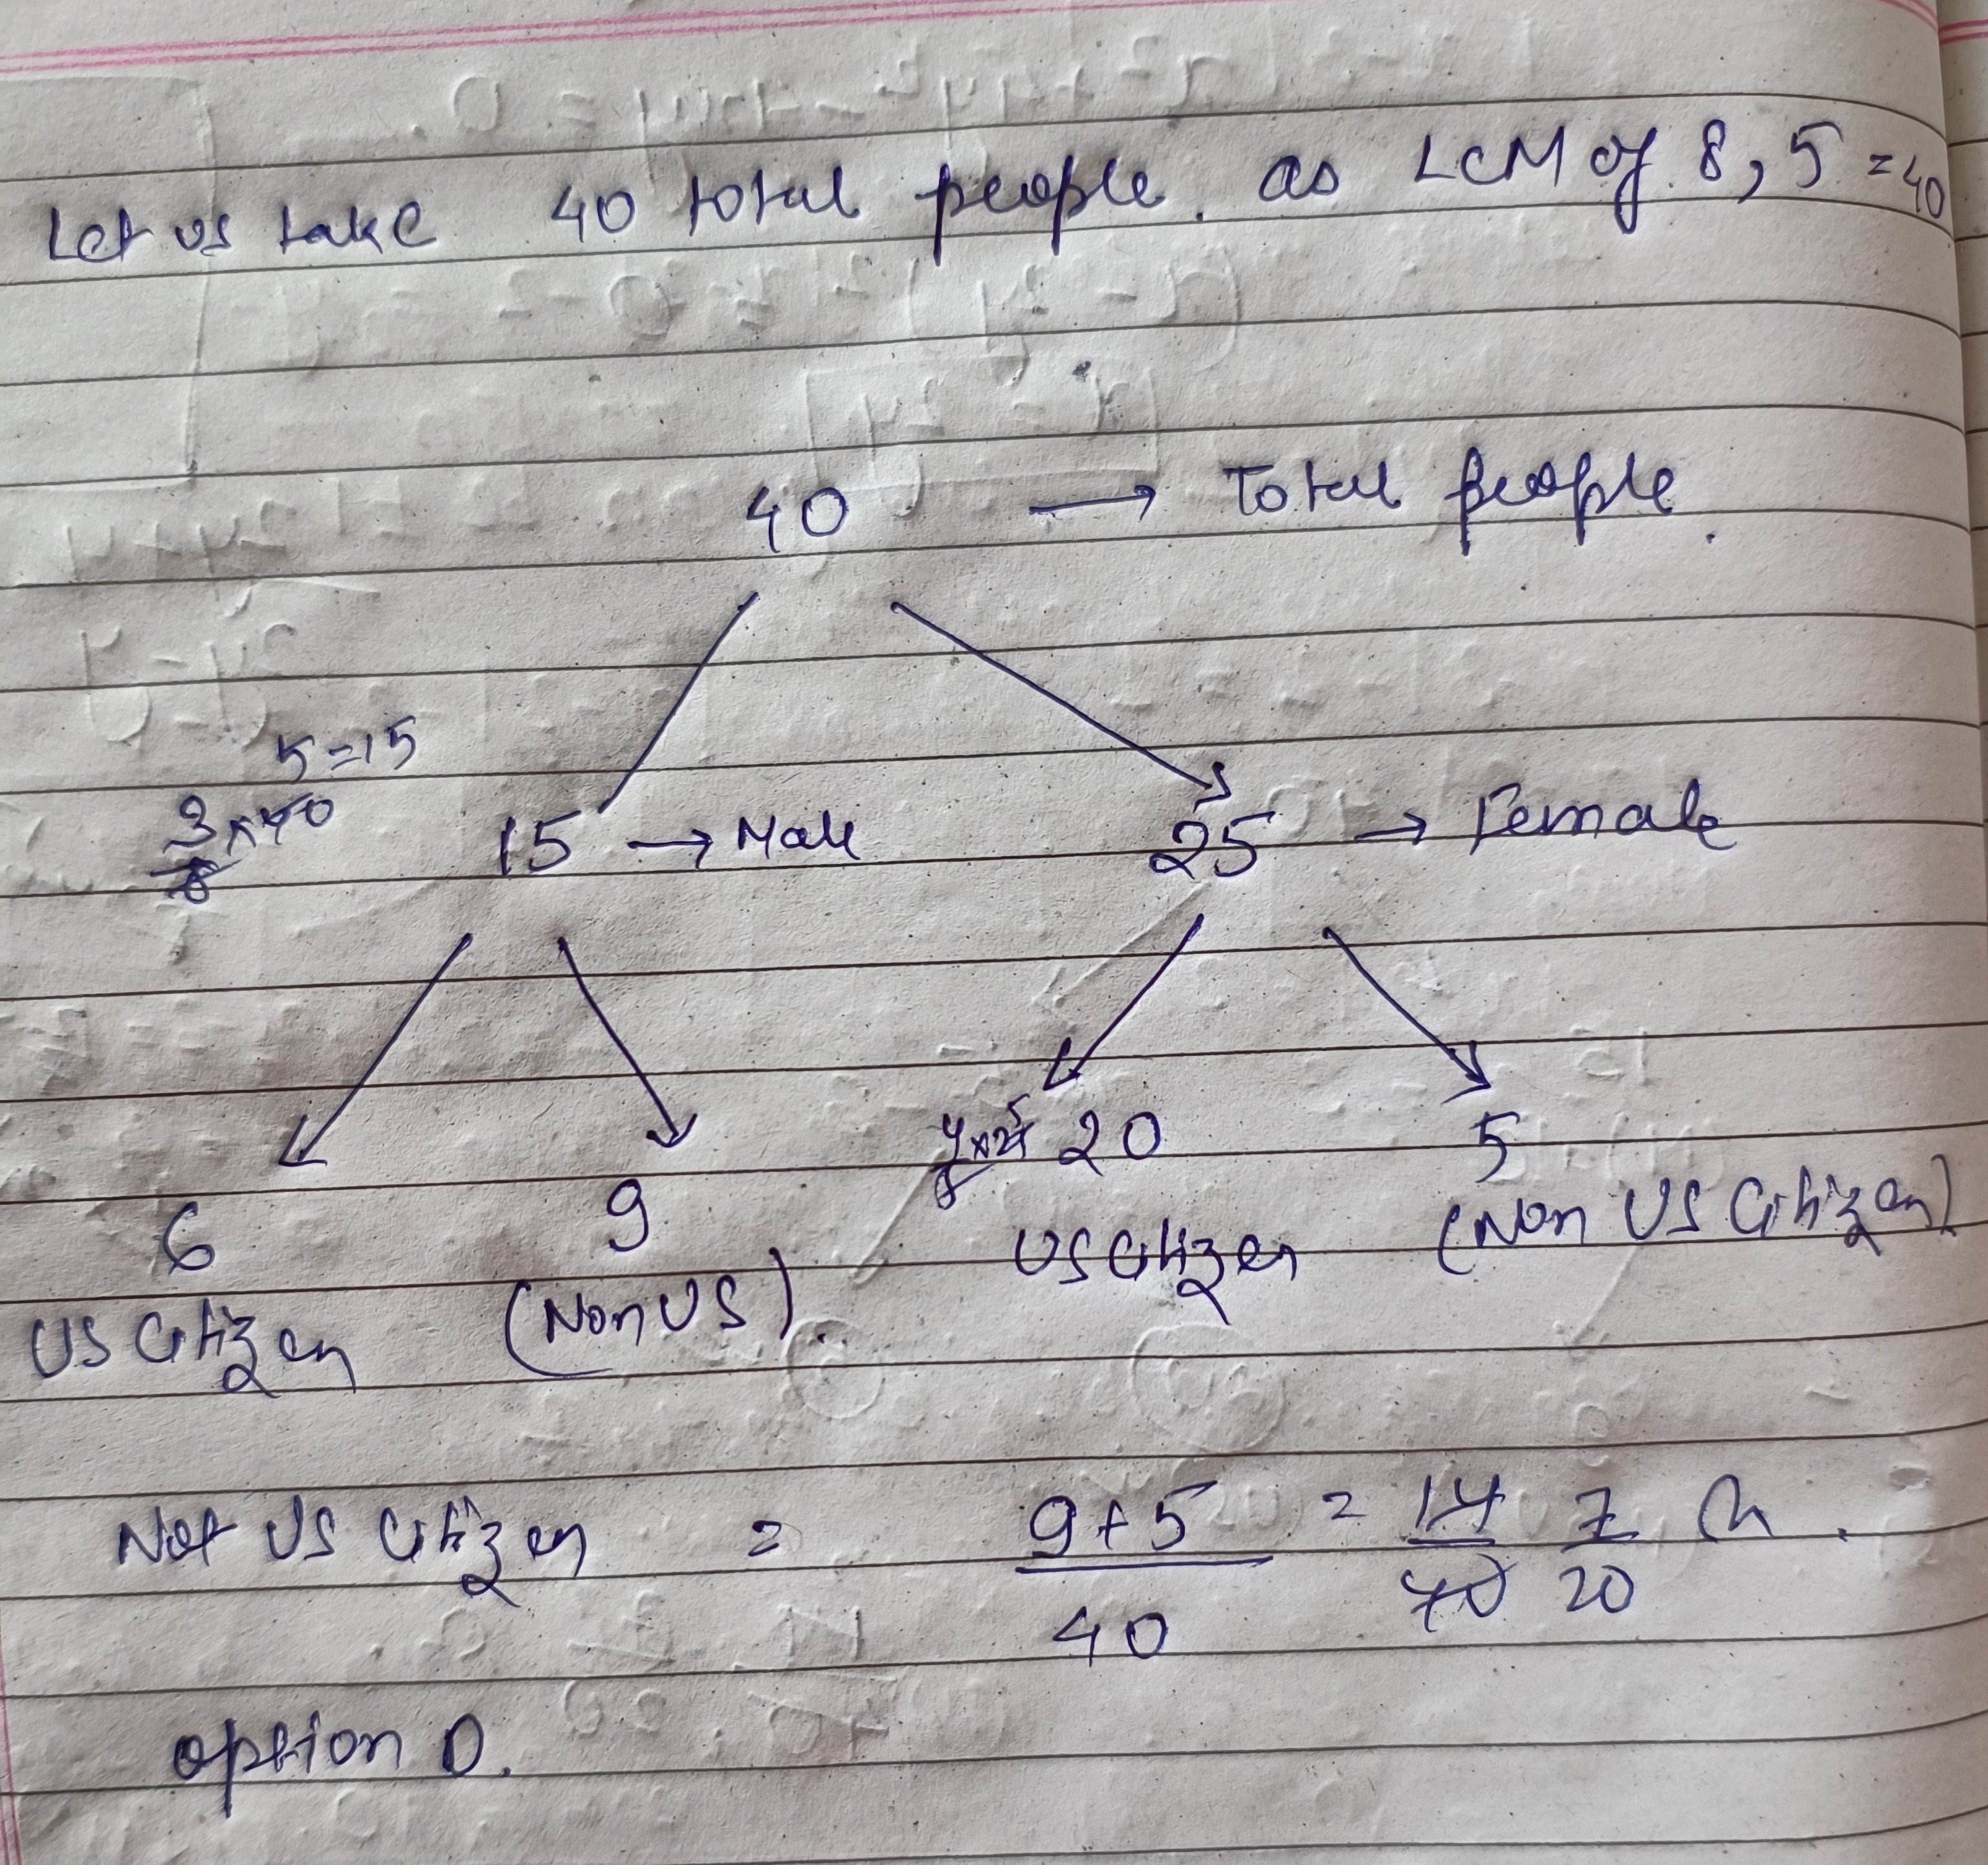 Let us take 40 total people. as LCM of 8, 5 = 40
40 → Total people.
5=15
3/8 × 40
15 → Male 25 → Female
6 9 4×25/5 20 5
US Citizen (Non US). US Citizen (Non US Citizen)
Not US Citizen = 9+5/40 = 14/40 7/20
option D.